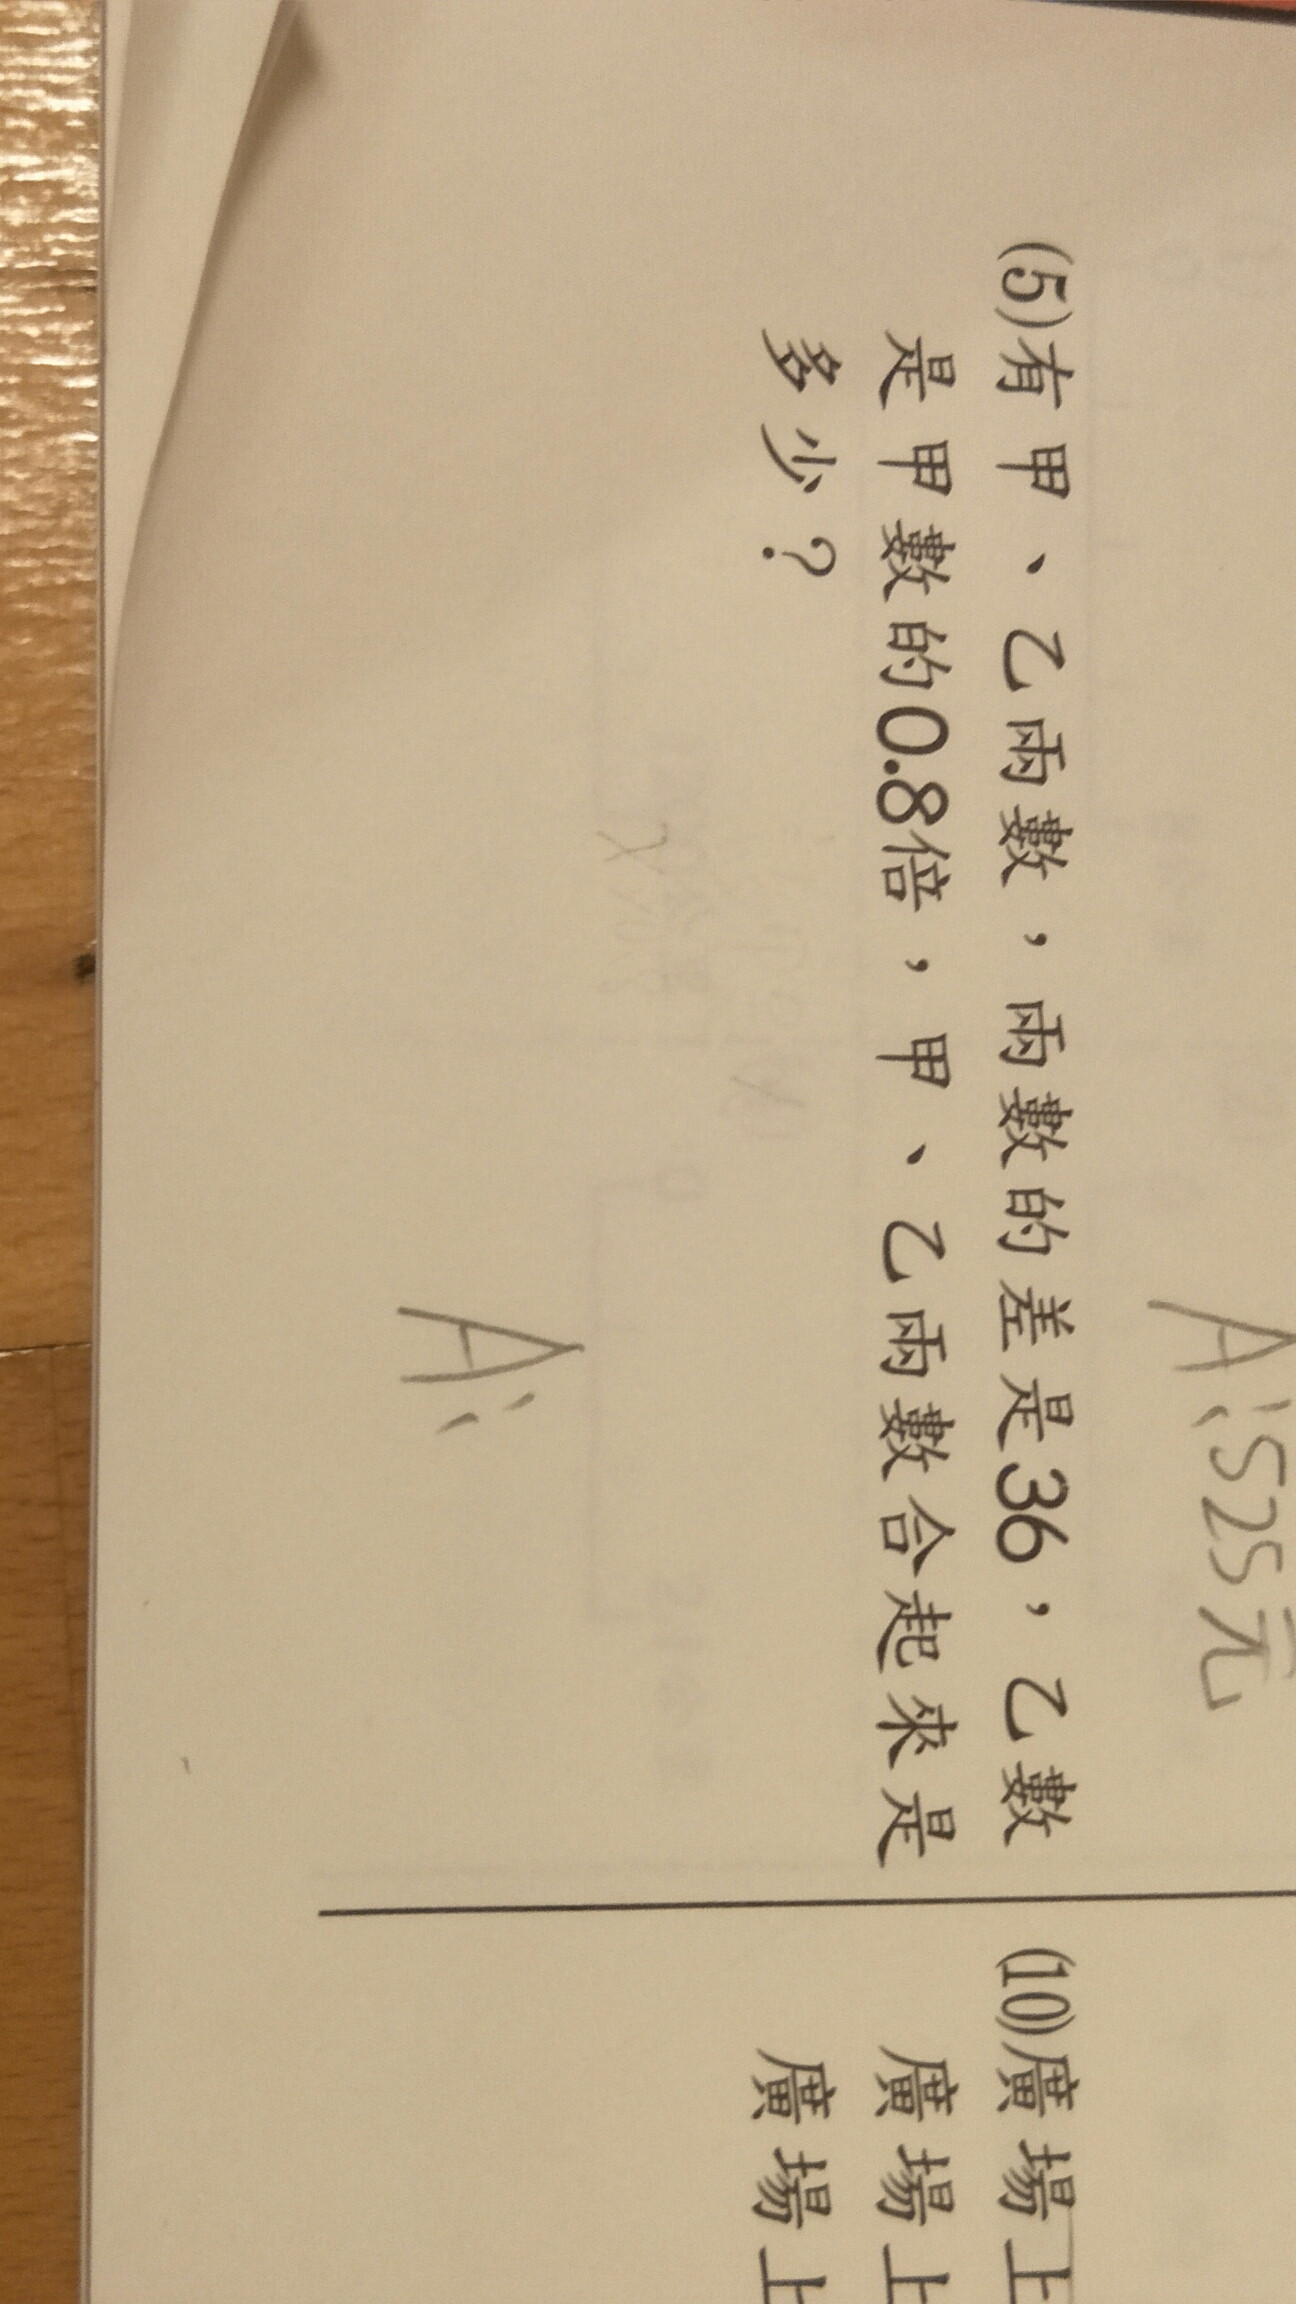 A:525元
(5)有甲、乙兩數，兩數的差是36，乙數
是甲數的0.8倍，甲、乙兩數合起來是
多少？
A:
(10)廣場上
廣場上
廣場上